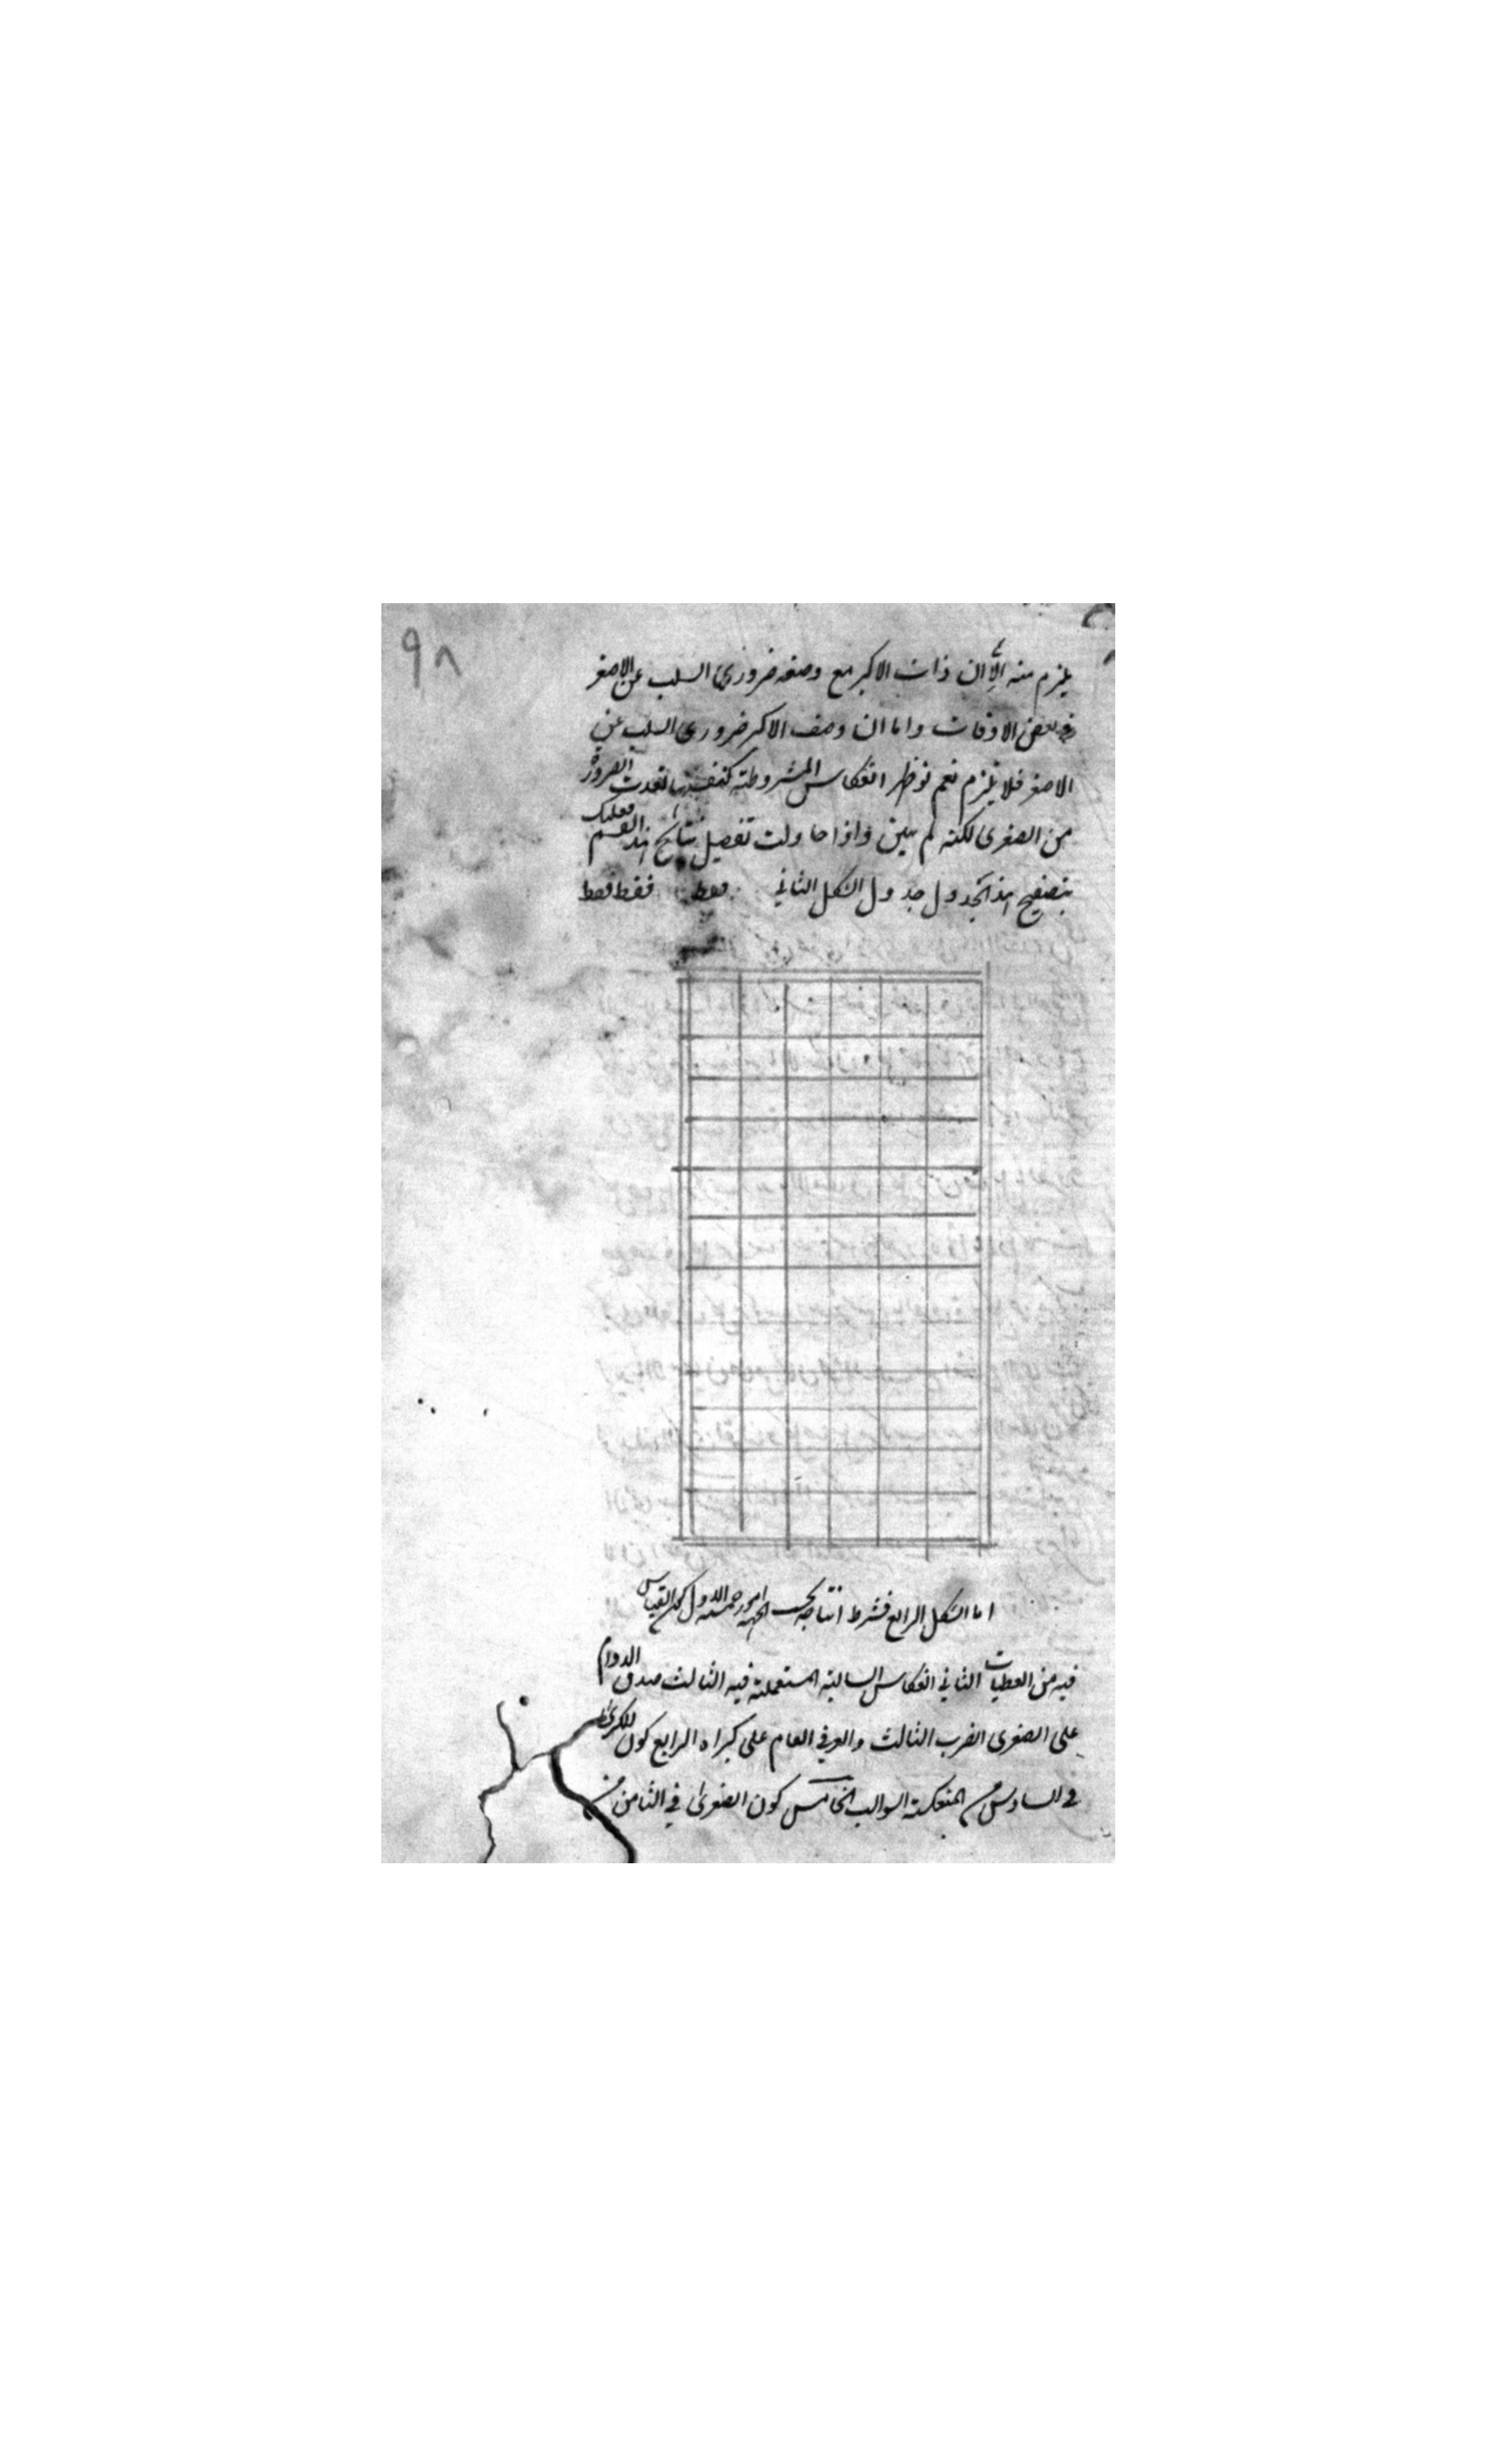 ٩٨
يلزم منه الا ان ذات الاكبر مع وصفه ضرورى السلب عن الاصغر
فى بعض الاوقات واما ان وصف الاكبر ضرورى السلب عن
الاصغر فلا يلزم نعم لو ظهر انعكاس المشروطة كنفسها تعدت الضرورة
من الصغرى لكنه لم يتبين واذا حاولت تفصيل نتائج هذا القسم فعليك
بتصفح هذا الجدول جدول الشكل الثانى فقط فقط فقط
اما الشكل الرابع فشرط انتاجه بحسب الجهة امور خمسة الاول كون القياس
فيه من الفعليات الثانى انعكاس السالبة المستعملة فيه الثالث صدق الدوام
على الصغرى الضرب الثالث والعرفى العام على كبراه الرابع كون الكبرى
فى السادس من المنعكسة السوالب الخامس كون الصغرى فى الثامن من